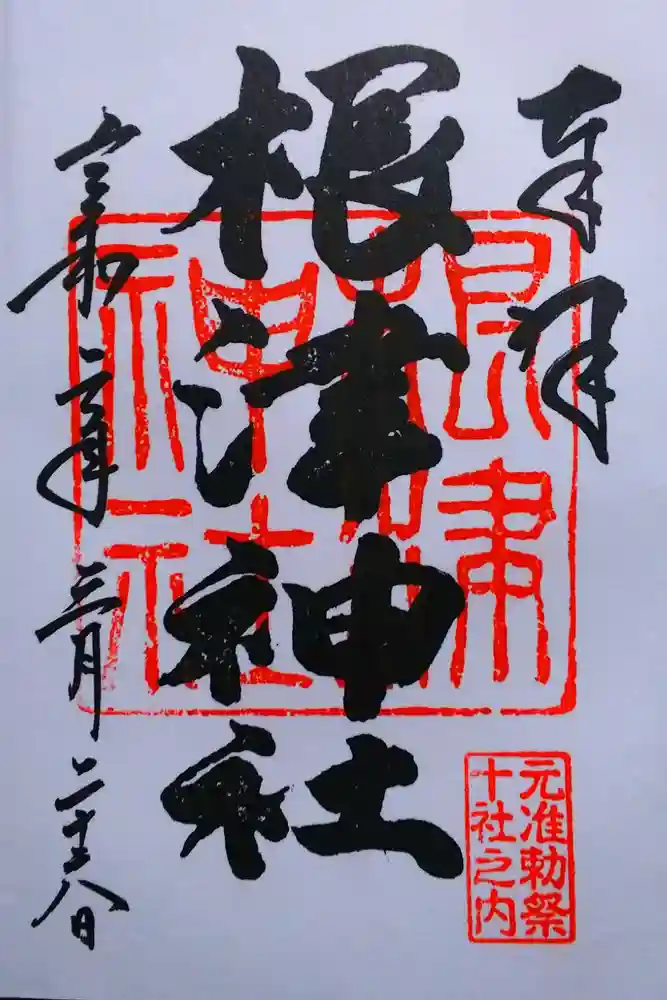 奉拝
根津神社
根津神社
元准勅祭
十社之内
令和二年三月二十八日